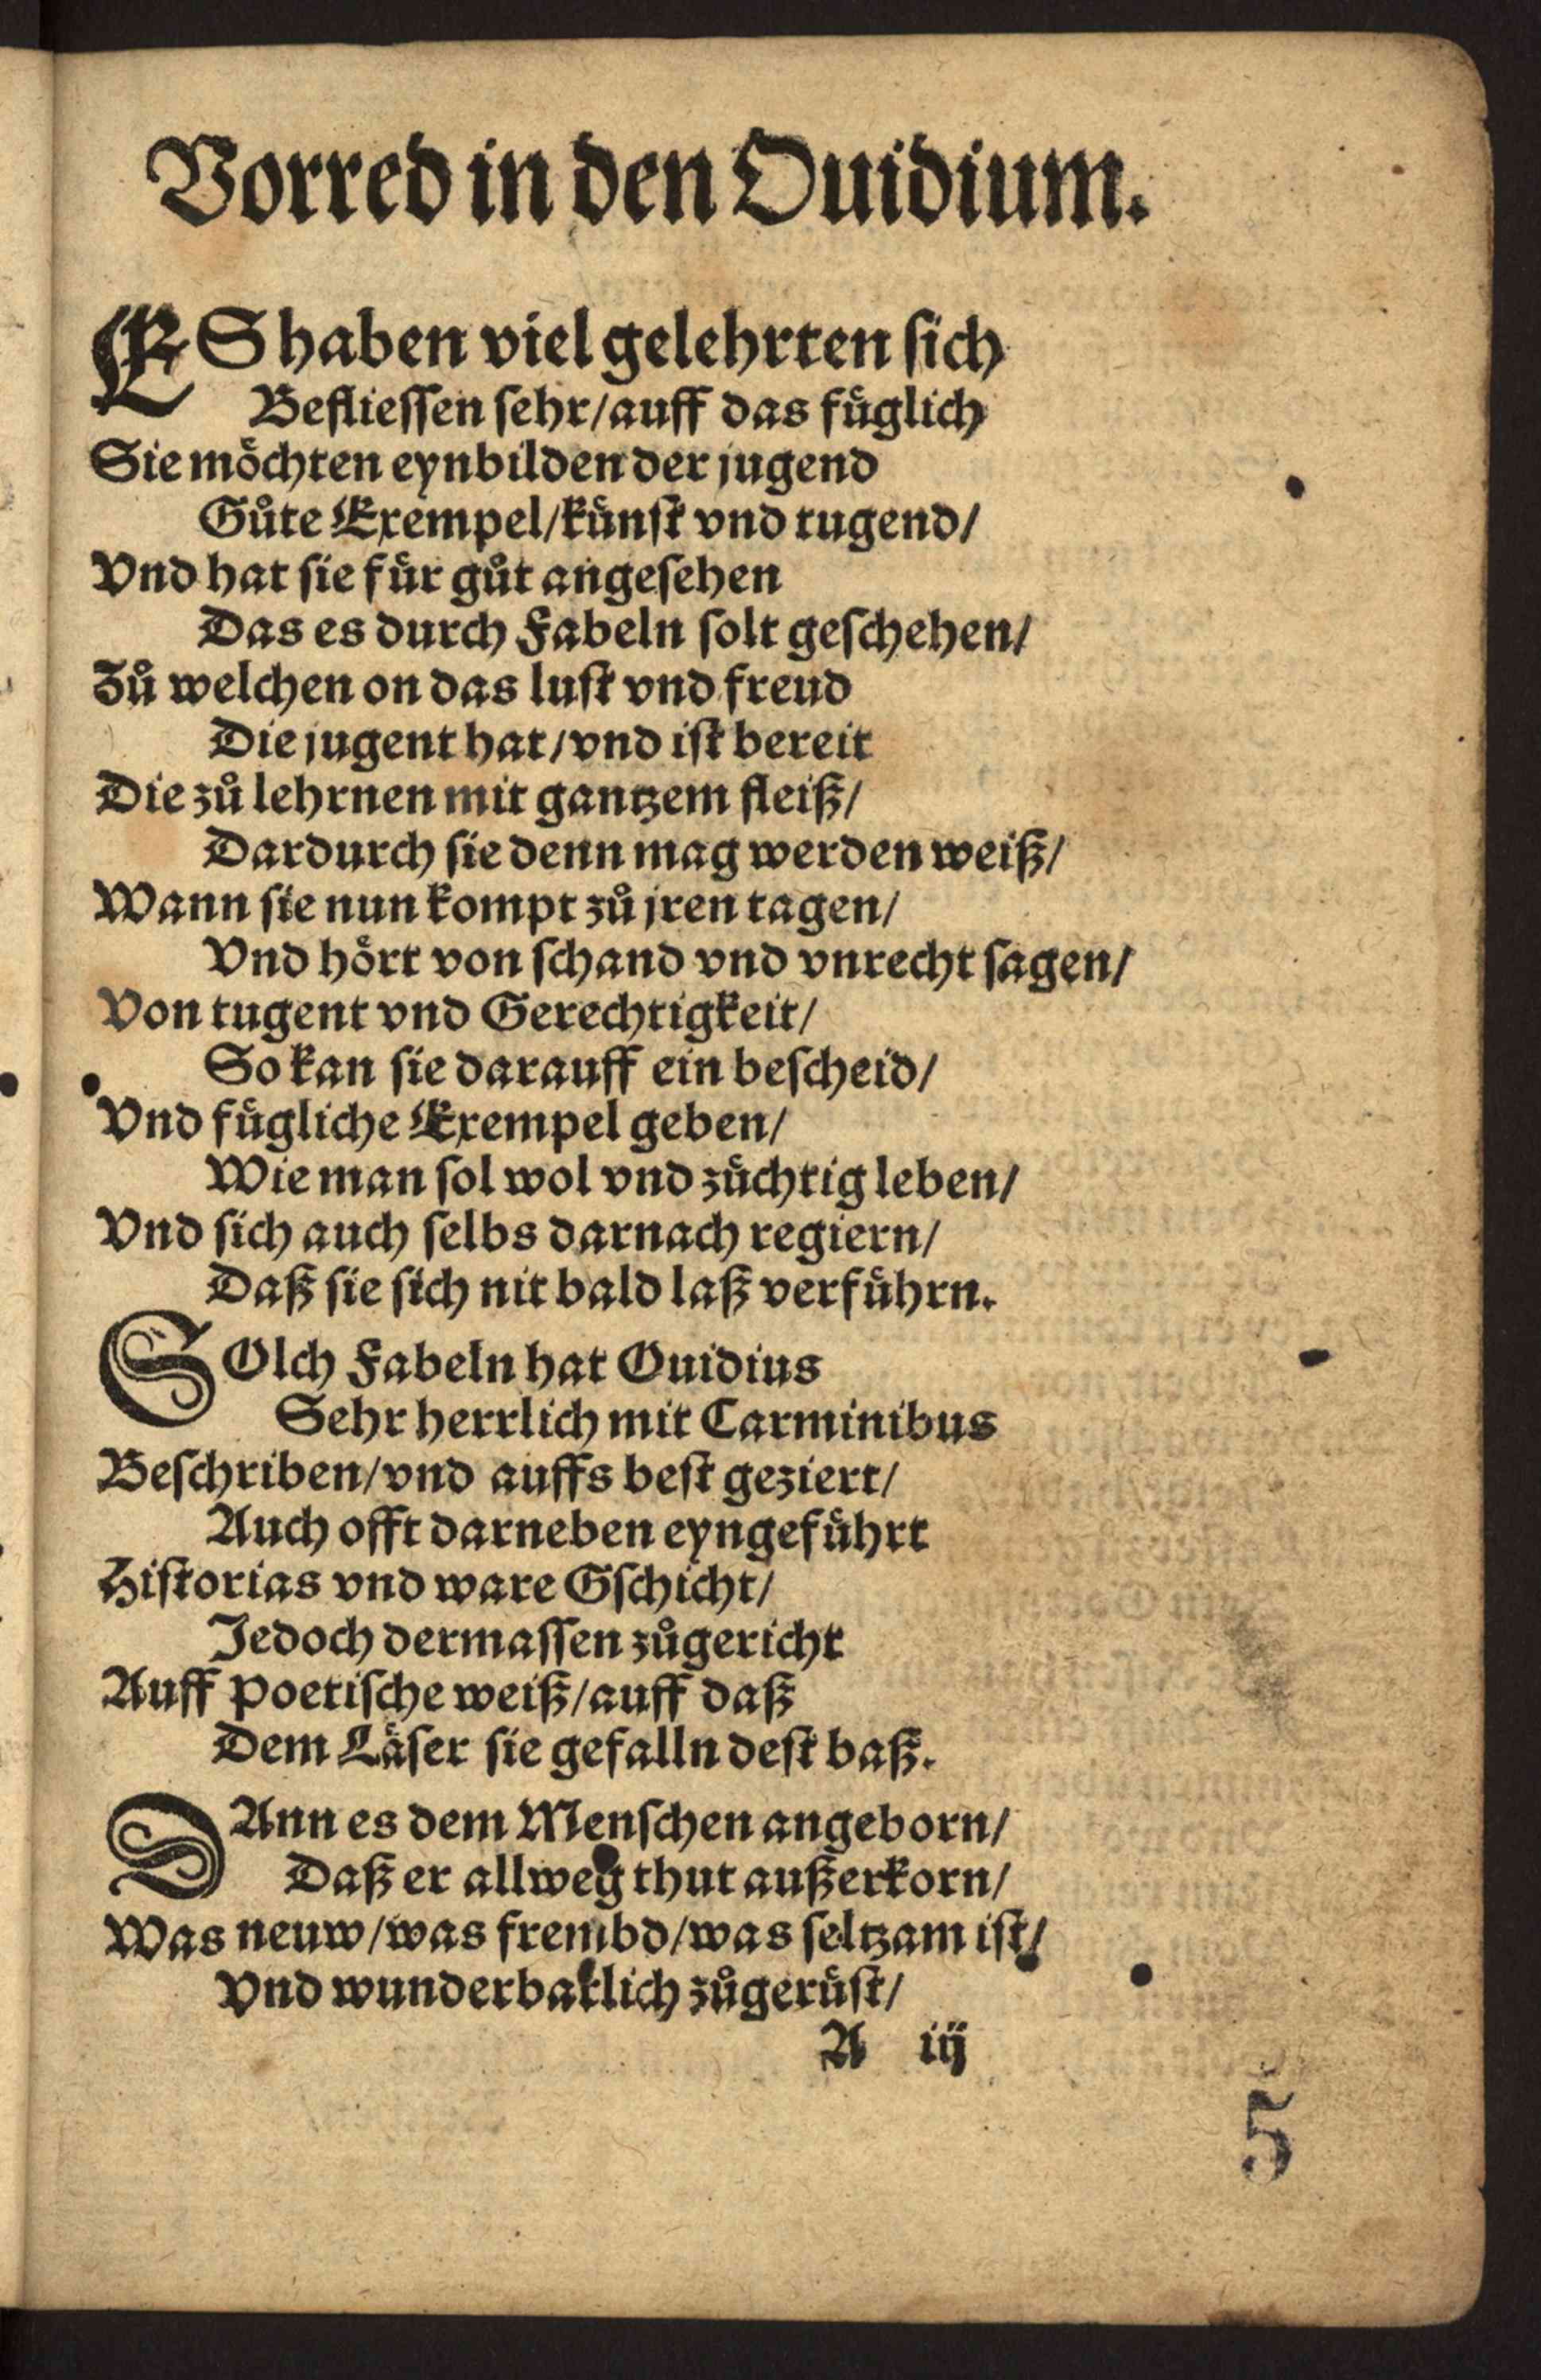 Vorred in den Ouidium.
ES haben viel gelehrten sich
Befliessen sehr/auff das fuͤglich
Sie moͤchten eynbilden der jugend
Guͦte Exempel/kuͤnst vnd tugend/
Vnd hat sie fuͤr guͦt angesehen
Das es durch Fabeln solt geschehen/
Zuͦ welchen on das lust vnd freud
Die jugent hat/vnd ist bereit
Die zuͦ lehrnen mit gantzem fleiß/
Dardurch sie denn mag werden weiß/
Wann sie nun kompt zuͦ jren tagen/
Vnd hoͤrt von schand vnd vnrecht sagen/
Von tugent vnd Gerechtigkeit/
So kan sie darauff ein bescheid/
Vnd fuͤgliche Exempel geben/
Wie man sol wol vnd zuͤchtig leben/
Vnd sich auch selbs darnach regiern/
Daß sie sich nit bald laß verfuͤhrn.
SOlch Fabeln hat Ouidius
Sehr herrlich mit Carminibus
Beschriben/vnd auffs best geziert/
Auch offt darneben eyngefuͤhrt
Historias vnd ware Gschicht/
Jedoch dermassen zuͦgericht
Auff Poetische weiß/auff daß
Dem Laͤser sie gefalln dest baß.
DAnn es dem Menschen angeborn/
Daß er allweg thut außerkorn/
Was neuw/was frembd/was seltzam ist/
Vnd wunderbarlich zuͦgeruͤst/
A iij
5